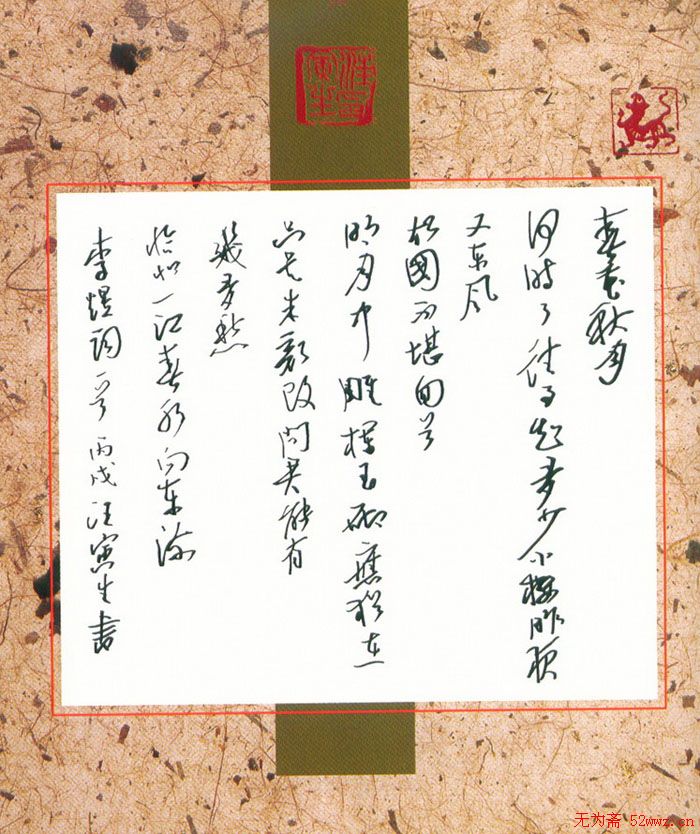 春花秋月
何时了往事知多少小楼昨夜
又东风
故國不堪回首
明月中雕栏玉砌應犹在
只是朱颜改问君能有
幾多愁
恰似一江春水向东流
李煜词一首 丙戌汪寅生書
无为斋 52wwz.cn